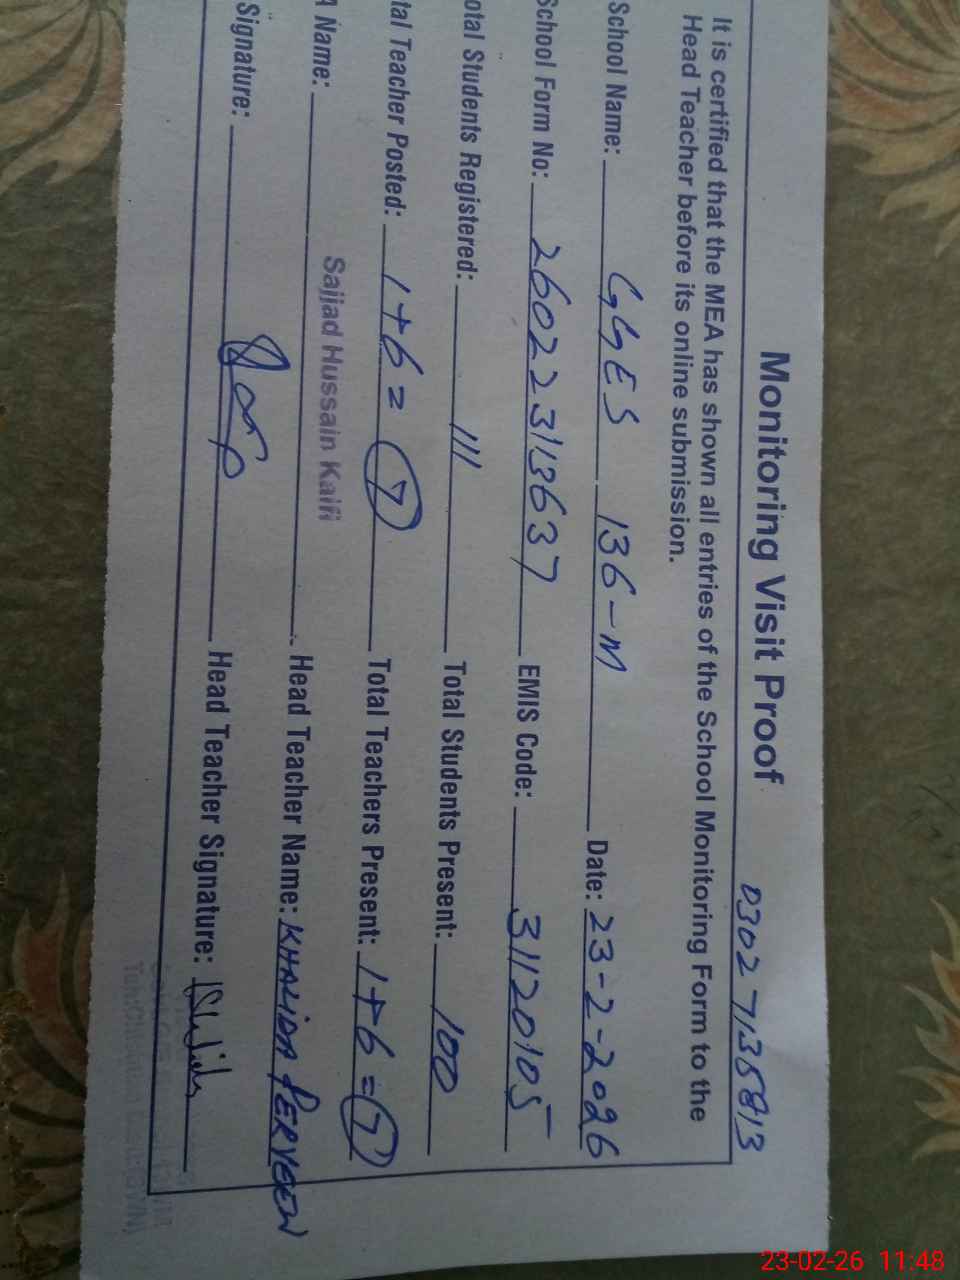 Monitoring Visit Proof 0302 7135813
It is certified that the MEA has shown all entries of the School Monitoring Form to the
Head Teacher before its online submission.
School Name: GGES 136-M Date: 23-2-2026
School Form No: 2602231363​7 EMIS Code: 31120105
otal Students Registered: 111 Total Students Present: 100
tal Teacher Posted: 1+6=7 Total Teachers Present: 1+6=7
A Name: Sajjad Hussain Kaifi Head Teacher Name: KHALIDA PERVEEN
Signature: Head Teacher Signature:
23-02-26 11:48